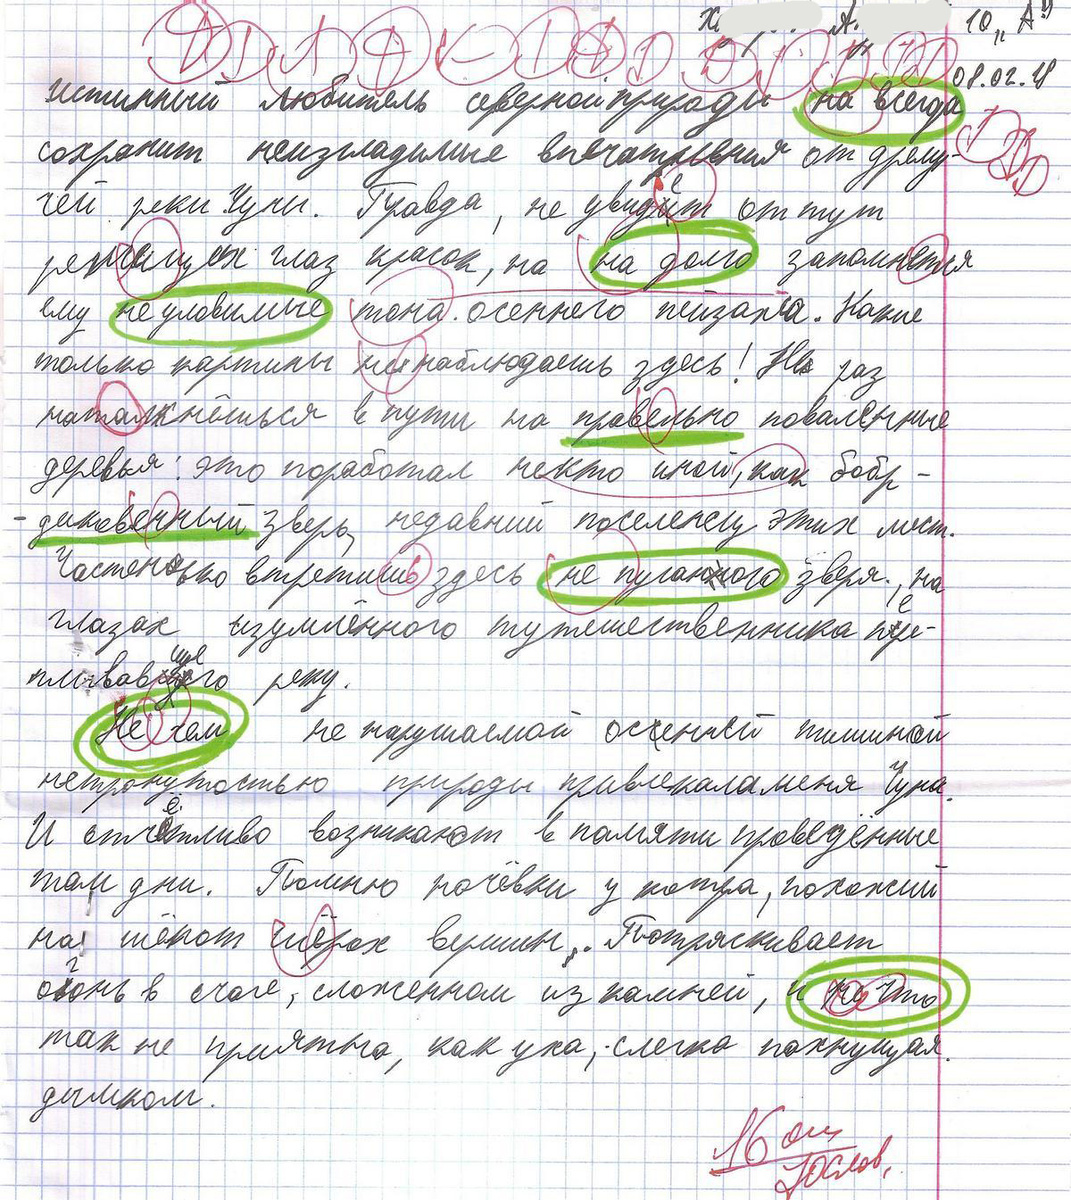 10 „А"
08.02.18
истинный любитель северной природы на всегда
сохранит неизгладимые впечатления от дрему-
чей реки Чуны. Правда, не увидит от тут
режущих глаз красок, на на долго запомнется
ему не уловимые тона осеннего пейзажа. Какие
только картины не наблюдаешь здесь! Не раз
наталкнёшься в пути на правельно поваленные
деревья: это поработал не кто иной, как бобр -
- диковенный зверь, недавний поселенец этих мест.
Частенько встретишь здесь не пуганого зверя, на
глазах изумлённого путешественника пе-
плывавщего реку.
Не чем не нарушаемой осенней тишиной
нетронутостью природы привлекала меня Чуна.
И отчётливо возникают в памяти проведённые
там дни. Помню ночёвки у костра, похожий
на шёпот шёрох вершин. Потряскивает
огонь в очаге, сложенном из камней, и не что
так не приятна, как уха, слегка пахнущая
дымком.
16 ош